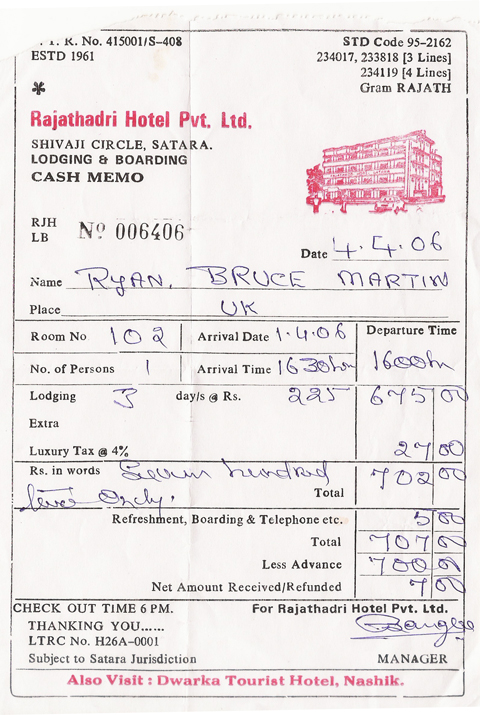 T. R. No. 415001/S-408 STD Code 95-2162
ESTD 1961 234017, 233818 [3 Lines]
234119 [4 Lines]
* Gram RAJATH
Rajathadri Hotel Pvt. Ltd.
SHIVAJI CIRCLE, SATARA.
LODGING & BOARDING
CASH MEMO
RJH
LB No 006406
Date 4.4.06
Name RYAN, BRUCE MARTIN
Place UK
Room No 102 Arrival Date 1.4.06 Departure Time
No. of Persons 1 Arrival Time 1630hr 1600hr
Lodging 3 day/s @ Rs. 225 675 00
Extra
Luxury Tax @ 4% 27 00
Rs. in words Seven hundred 702 00
Only. Total
Refreshment, Boarding & Telephone etc. 5 00
Total 707 00
Less Advance 700 00
Net Amount Received/Refunded 7 00
CHECK OUT TIME 6 PM. For Rajathadri Hotel Pvt. Ltd.
THANKING YOU......
LTRC No. H26A-0001
Subject to Satara Jurisdiction MANAGER
Also Visit : Dwarka Tourist Hotel, Nashik.